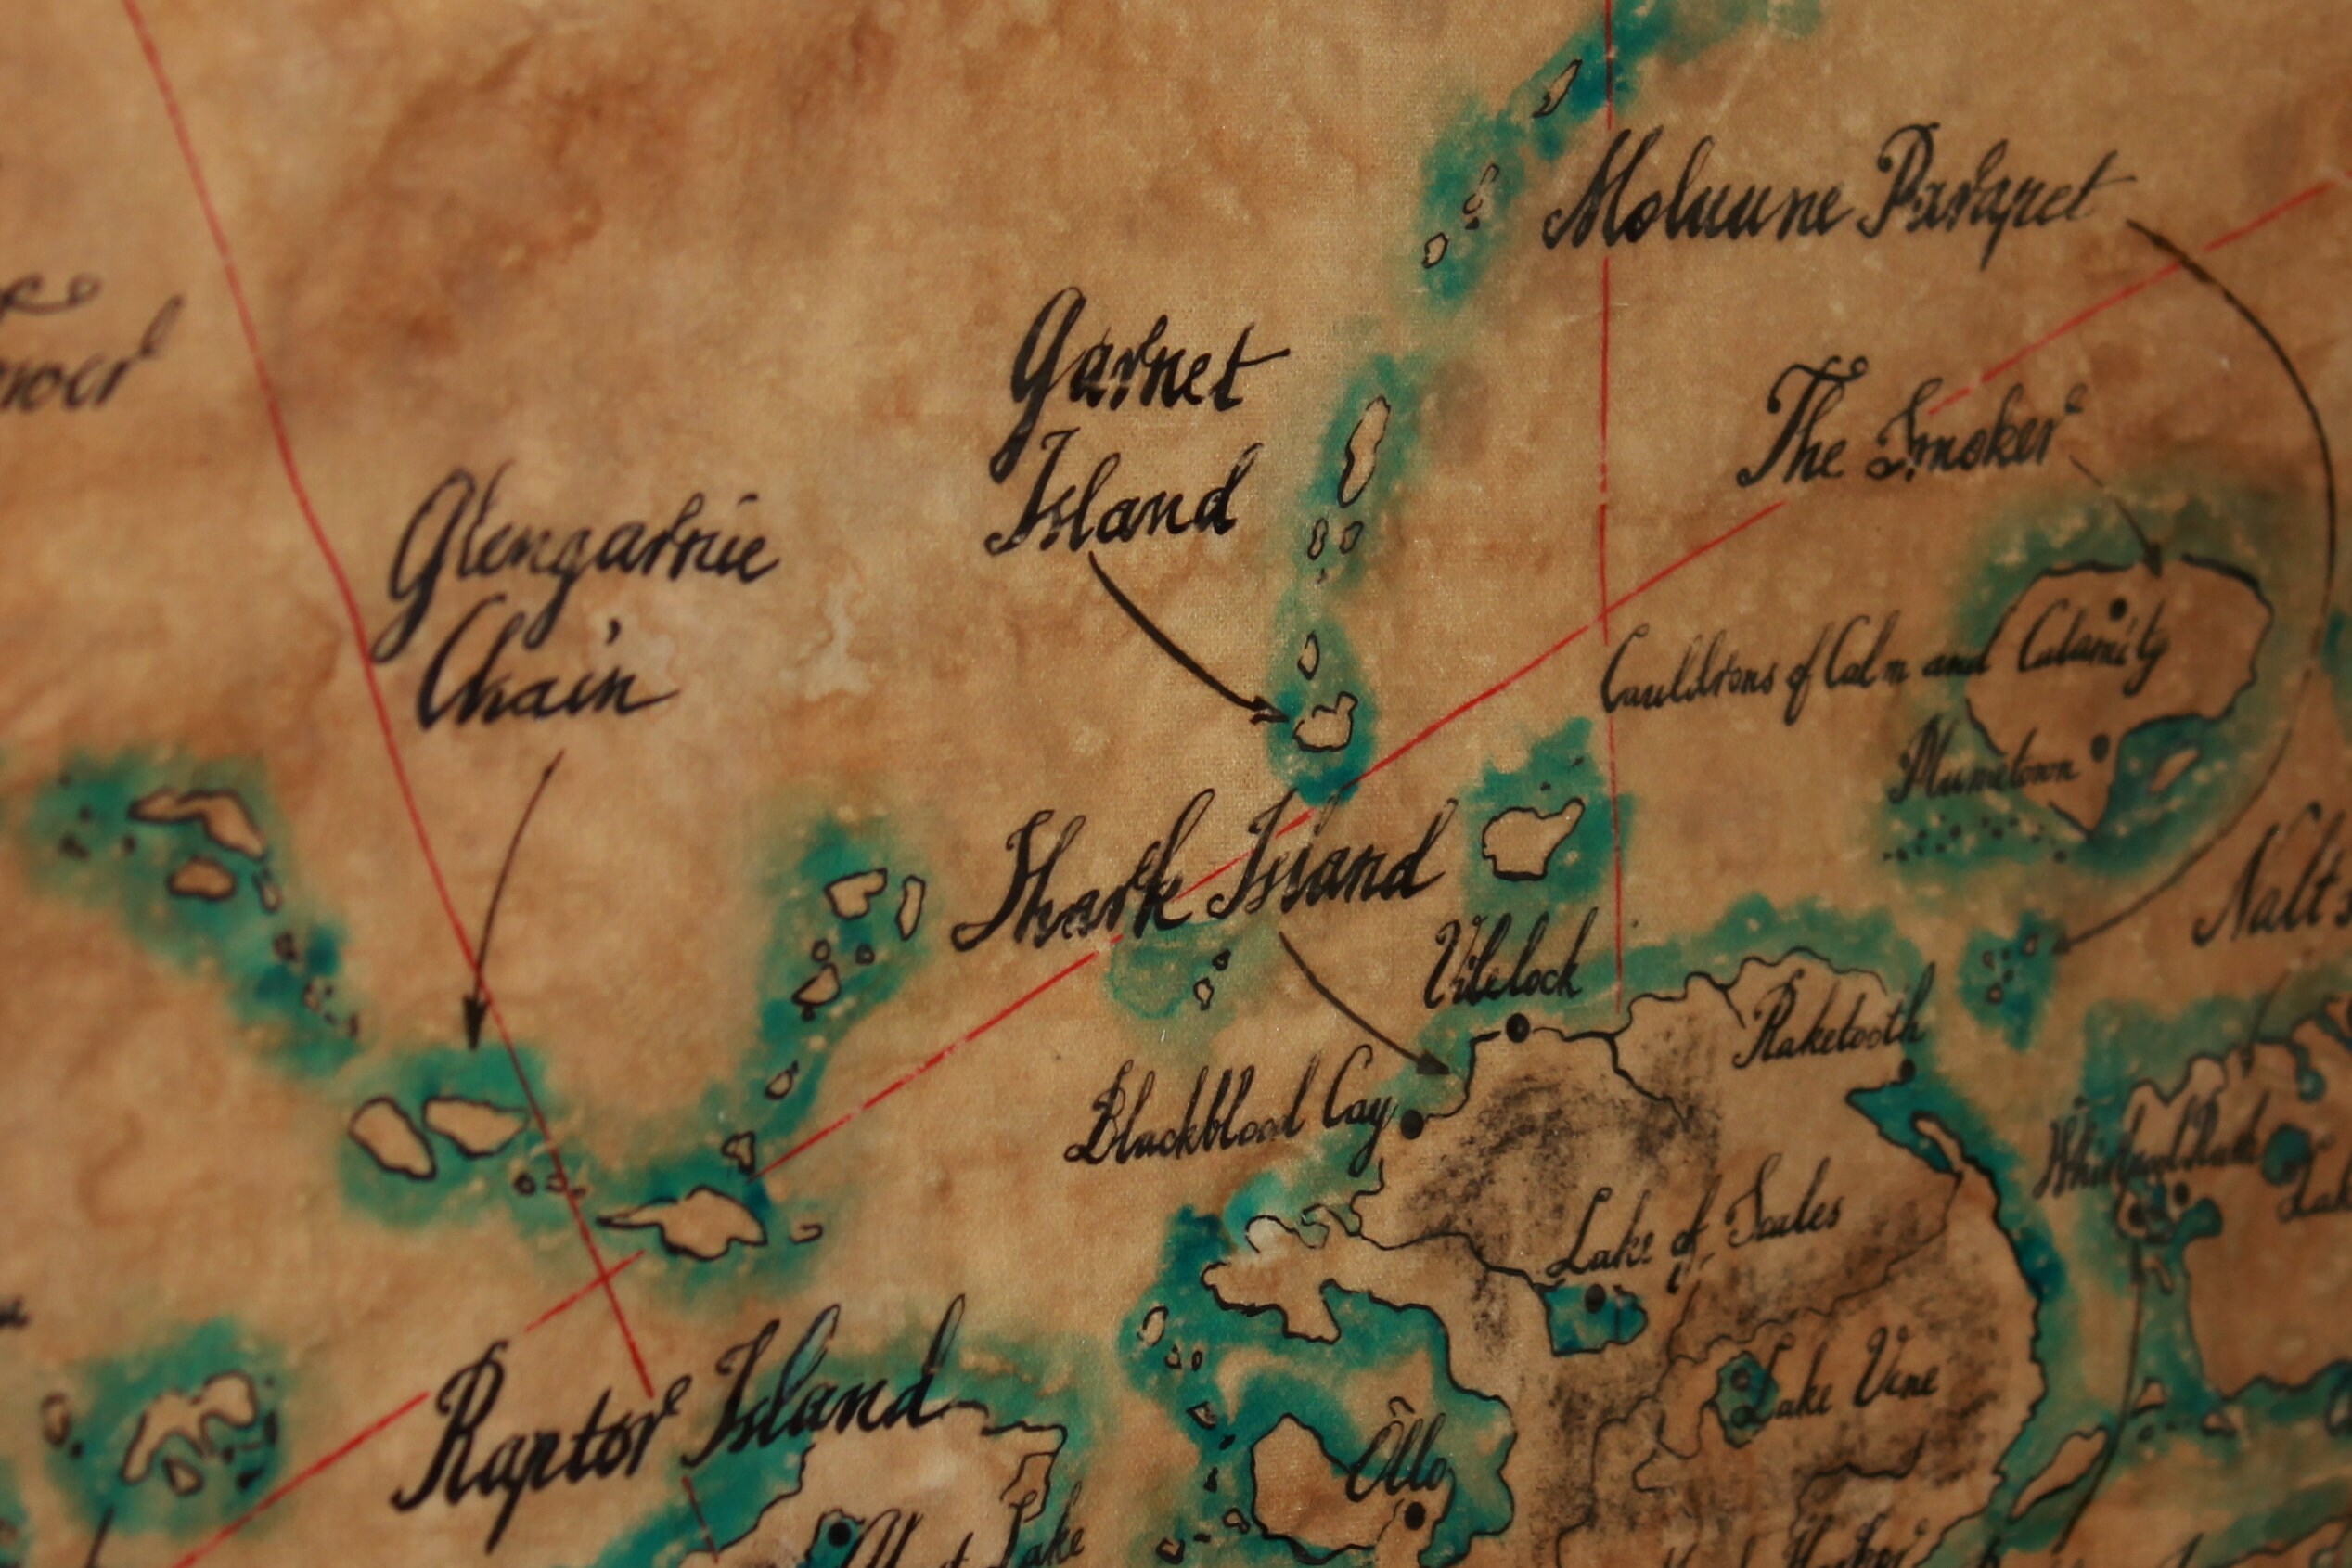 Garnet
Island
The Smoker
Glengarrie
Chain
Cauldrons of Calm and Calamity
Plumetown
Shark Island
Vilelock
Raketooth
Blackblood Cay
Lake of Scales
Lake Vine
Raptor Island
Ollo
Lake